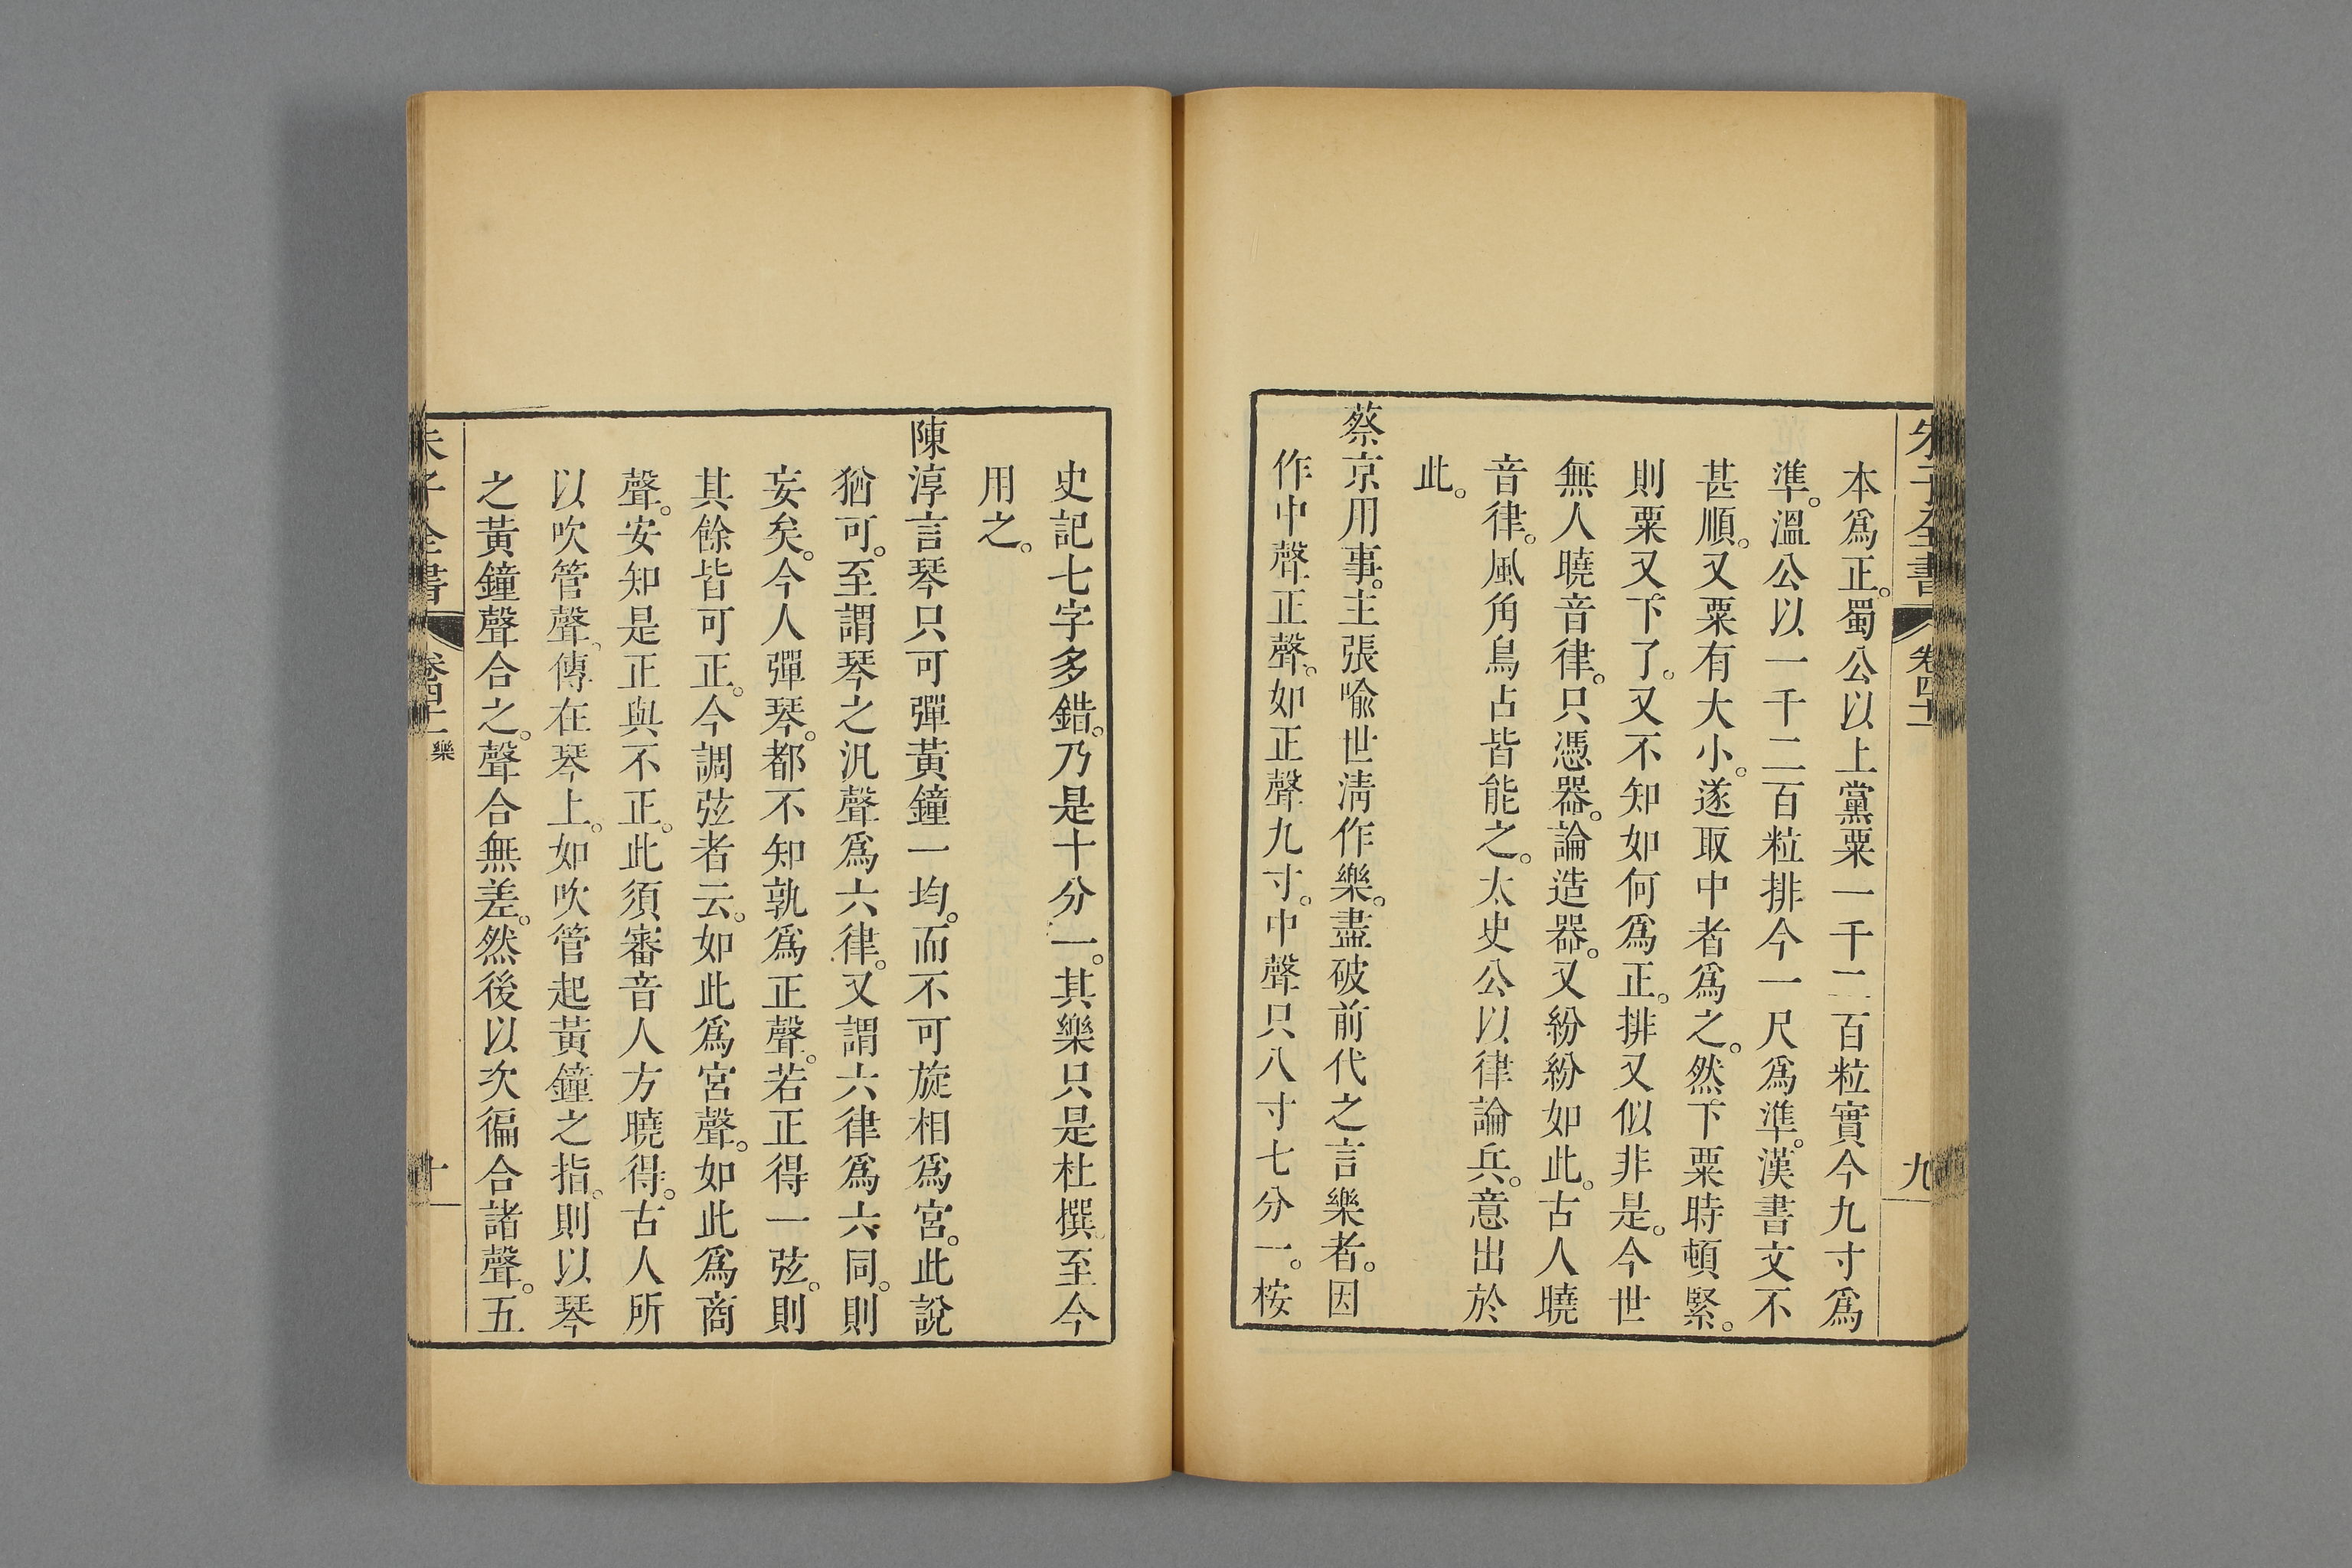 朱子全書 卷四十一 九
本爲正。蜀公以上黨粟一千二百粒實今九寸爲
準。溫公以一千二百粒排今一尺爲準。漢書文不
甚順。又粟有大小。遂取中者爲之。然下粟時頓緊。
則粟又下了。又不知如何爲正。排又似非是。今世
無人曉音律。只憑器。論造器。又紛紛如此。古人曉
音律。風角鳥占皆能之。太史公以律論兵。意出於
此。
蔡京用事。主張喻世淸作樂。盡破前代之言樂者。因
作中聲正聲。如正聲九寸。中聲只八寸七分一。桉
史記七字多錯。乃是十分一。其樂只是杜撰。至今
用之。
陳淳言琴只可彈黃鐘一均。而不可旋相爲宮。此說
猶可。至謂琴之汎聲爲六律。又謂六律爲六同。則
妄矣。今人彈琴。都不知孰爲正聲。若正得一弦。則
其餘皆可正。今調弦者云。如此爲宮聲。如此爲商
聲。安知是正與不正。此須審音人方曉得。古人所
以吹管聲。傳在琴上。如吹管起黃鐘之指。則以琴
之黃鐘聲合之。聲合無差。然後以次徧合諸聲。五
朱子全書 卷四十一 樂 十